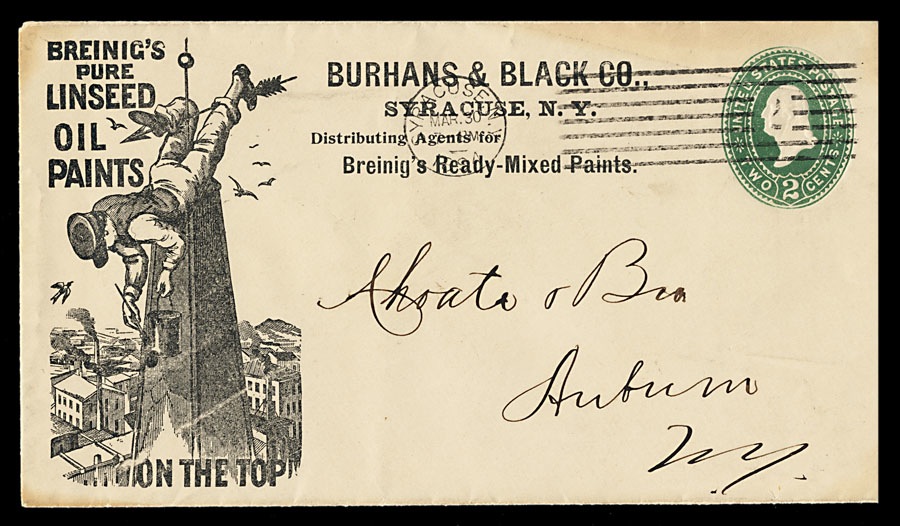 BREINIG'S
PURE
LINSEED
OIL
PAINTS
ON THE TOP
BURHANS & BLACK CO.,
SYRACUSE, N. Y.
Distributing Agents for
Breinig's Ready-Mixed Paints.
SYRACUSE
MAR. 30
UNITED STATES POSTAGE
TWO 2 CENTS
Choate & Bro
Auburn
N.Y.